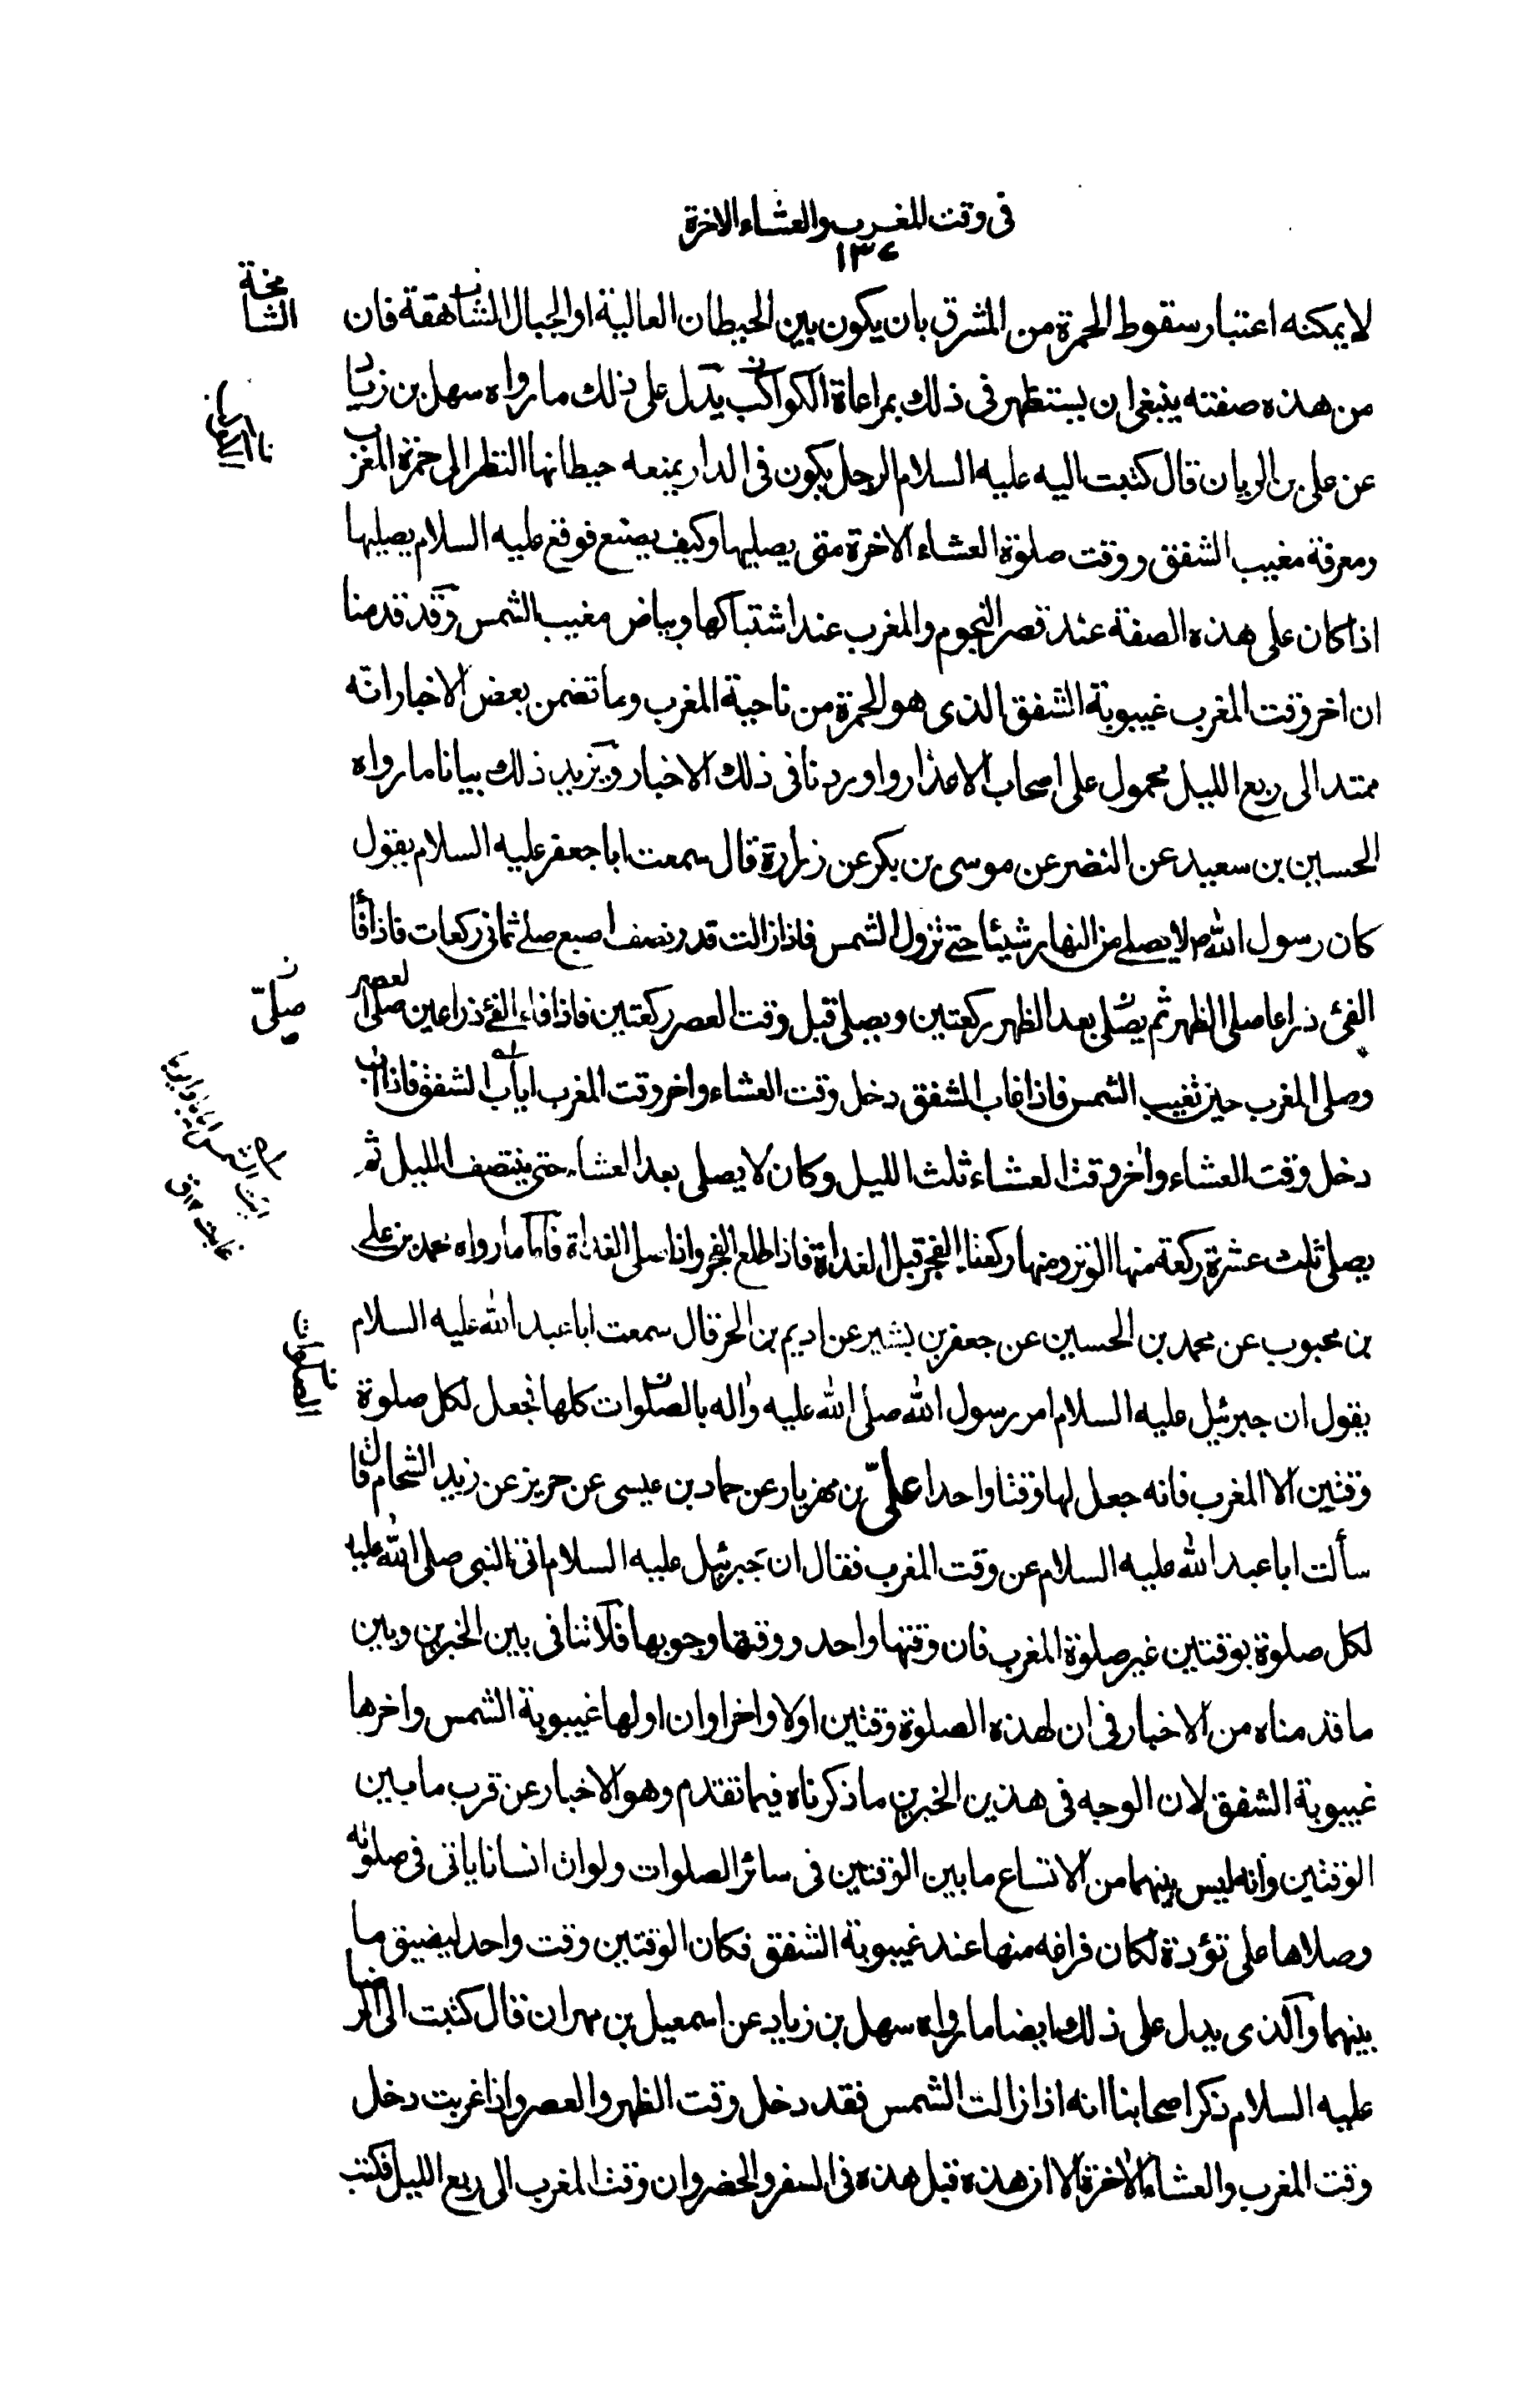 فى وقت المغرب والعشاء الاخرة
١٣٧
لا يمكنه اعتبار سقوط الحمرة من المشرق بان يكون بين الحيطان العالية او الجبال الشاهقة فان
الشامخة
من هذه صفته ينبغى ان يستظهر فى ذلك بمراعاة الكواكب يدل على ذلك ما رواه سهل بن زياد
عن على بن الريان قال كتبت اليه عليه السلام الرجل يكون فى الدار يمنعه حيطانها النظر الى حمرة المغرب
ومعرفة مغيب الشفق ووقت صلوة العشاء الاخرة متى يصليها وكيف يصنع فوقع عليه السلام يصليها
اذا كان على هذه الصفة عند قصر النجوم والمغرب عند اشتباكها وبياض مغيب الشمس وقد قدمنا
ان اخر وقت المغرب غيبوبة الشفق الذى هو الحمرة من ناحية المغرب وما تضمن بعض الاخبار انه
ممتد الى ربع الليل محمول على اصحاب الاعذار واوردنا فى ذلك الاخبار ويزيد ذلك بيانا ما رواه
الحسين بن سعيد عن النضر عن موسى بن بكر عن زرارة قال سمعت ابا جعفر عليه السلام يقول
كان رسول الله ص لا يصلى من النهار شيئا حتى تزول الشمس فاذا زالت قدر نصف اصبع صلى ثمانى ركعات فاذا فا
الفئ ذراعا صلى الظهر ثم يصلى بعد الظهر ركعتين ويصلى قبل وقت العصر ركعتين فاذا فاء الفئ ذراعين صلى العصر
صلى
وصلى المغرب حين تغيب الشمس فاذا غاب الشفق دخل وقت العشاء واخر وقت المغرب اياب الشفق فاذا اب
دخل وقت العشاء واخر وقت العشاء ثلث الليل وكان لا يصلى بعد العشاء حتى ينتصف الليل ثم
يصلى ثلث عشرة ركعة منها الوتر ومنها ركعتا الفجر قبل الغداة فاذا طلع الفجر واضا صلى الغداة فاما ما رواه محمد بن على
بن محبوب عن محمد بن الحسين عن جعفر بن بشير عن اديم بن الحر قال سمعت ابا عبد الله عليه السلام
الصلوات
يقول ان جبرئيل عليه السلام امر رسول الله صلى الله عليه واله بالصلوات كلها فجعل لكل صلوة
وقتين الا المغرب فانه جعل لها وقتا واحدا علىّ بن مهزيار عن حماد بن عيسى عن حريز عن زيد الشحام قال
سألت ابا عبد الله عليه السلام عن وقت المغرب فقال ان جبرئيل عليه السلام اتى النبى صلى الله عليه
لكل صلوة بوقتين غير صلوة المغرب فان وقتها واحد ووقتها وجوبها فلا تنافى بين الخبرين وبين
ما قدمناه من الاخبار فى ان لهذه الصلوة وقتين اولا واخرا وان اولها غيبوبة الشمس واخرها
غيبوبة الشفق لان الوجه فى هذين الخبرين ما ذكرناه فيما تقدم وهو الاخبار عن قرب ما بين
الوقتين وانه ليس بينهما من الاتساع ما بين الوقتين فى سائر الصلوات ولو ان انسانا ياتى فى صلوته
وصلاها على تؤدة لكان فراغه منها عند غيبوبة الشفق فكان الوقتين وقت واحد ليضيق ما
بينهما والذى يدل على ذلك ايضا ما رواه سهل بن زياد عن اسمعيل بن مهران قال كتبت الى الرضا
عليه السلام ذكر اصحابنا انه اذا زالت الشمس فقد دخل وقت الظهر والعصر واذا غربت دخل
وقت المغرب والعشاء الاخرة الا ان هذه قبل هذه فى السفر والحضر وان وقت المغرب الى ربع الليل فكتب